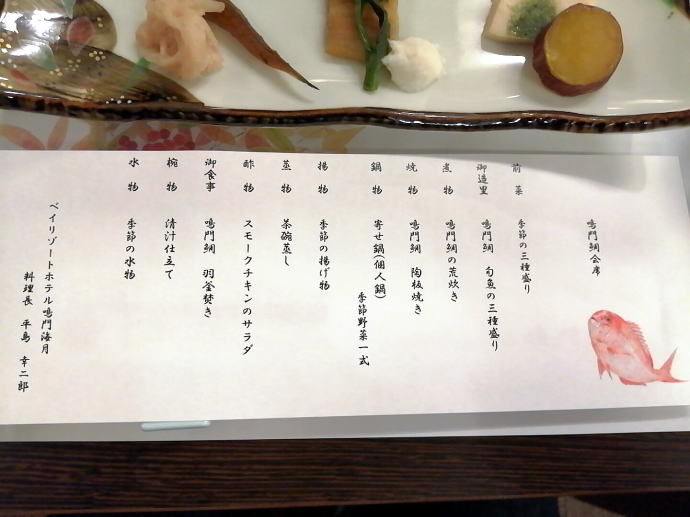 鳴門鯛会席
前菜 季節の三種盛り
御造里 鳴門鯛 旬魚の三種盛り
煮物 鳴門鯛の荒炊き
焼物 鳴門鯛 陶板焼き
鍋物 寄せ鍋(個人鍋)
季節野菜一式
揚物 季節の揚げ物
蒸物 茶碗蒸し
酢物 スモークチキンのサラダ
御食事 鳴門鯛 羽釜焚き
椀物 清汁仕立て
水物 季節の水物
ベイリゾートホテル鳴門海月
料理長 平島 幸二郎